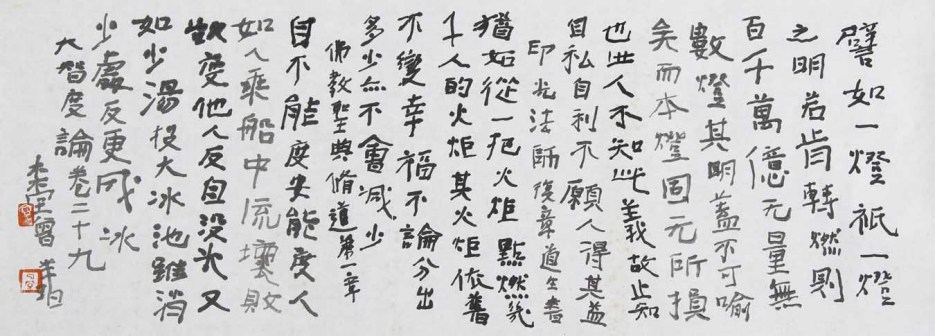 譬如一燈祇一燈
之明若肯轉燃則
百千萬億无量無
數燈其明蓋不可喻
矣而本燈固无所損
也世人不知此義故止知
自私自利不願人得其益
印光法師復章道生書
猶如從一把火炬點燃幾
千人的火炬其火炬依舊
不變幸福不論分出
多少亦不會減少
佛教聖典脩道第一章
自不能度安能度人
如人乘船中流壞敗
欲度他人反自没水又
如少湯投大冰池雖消
少處反更成冰
大智度論卷二十九